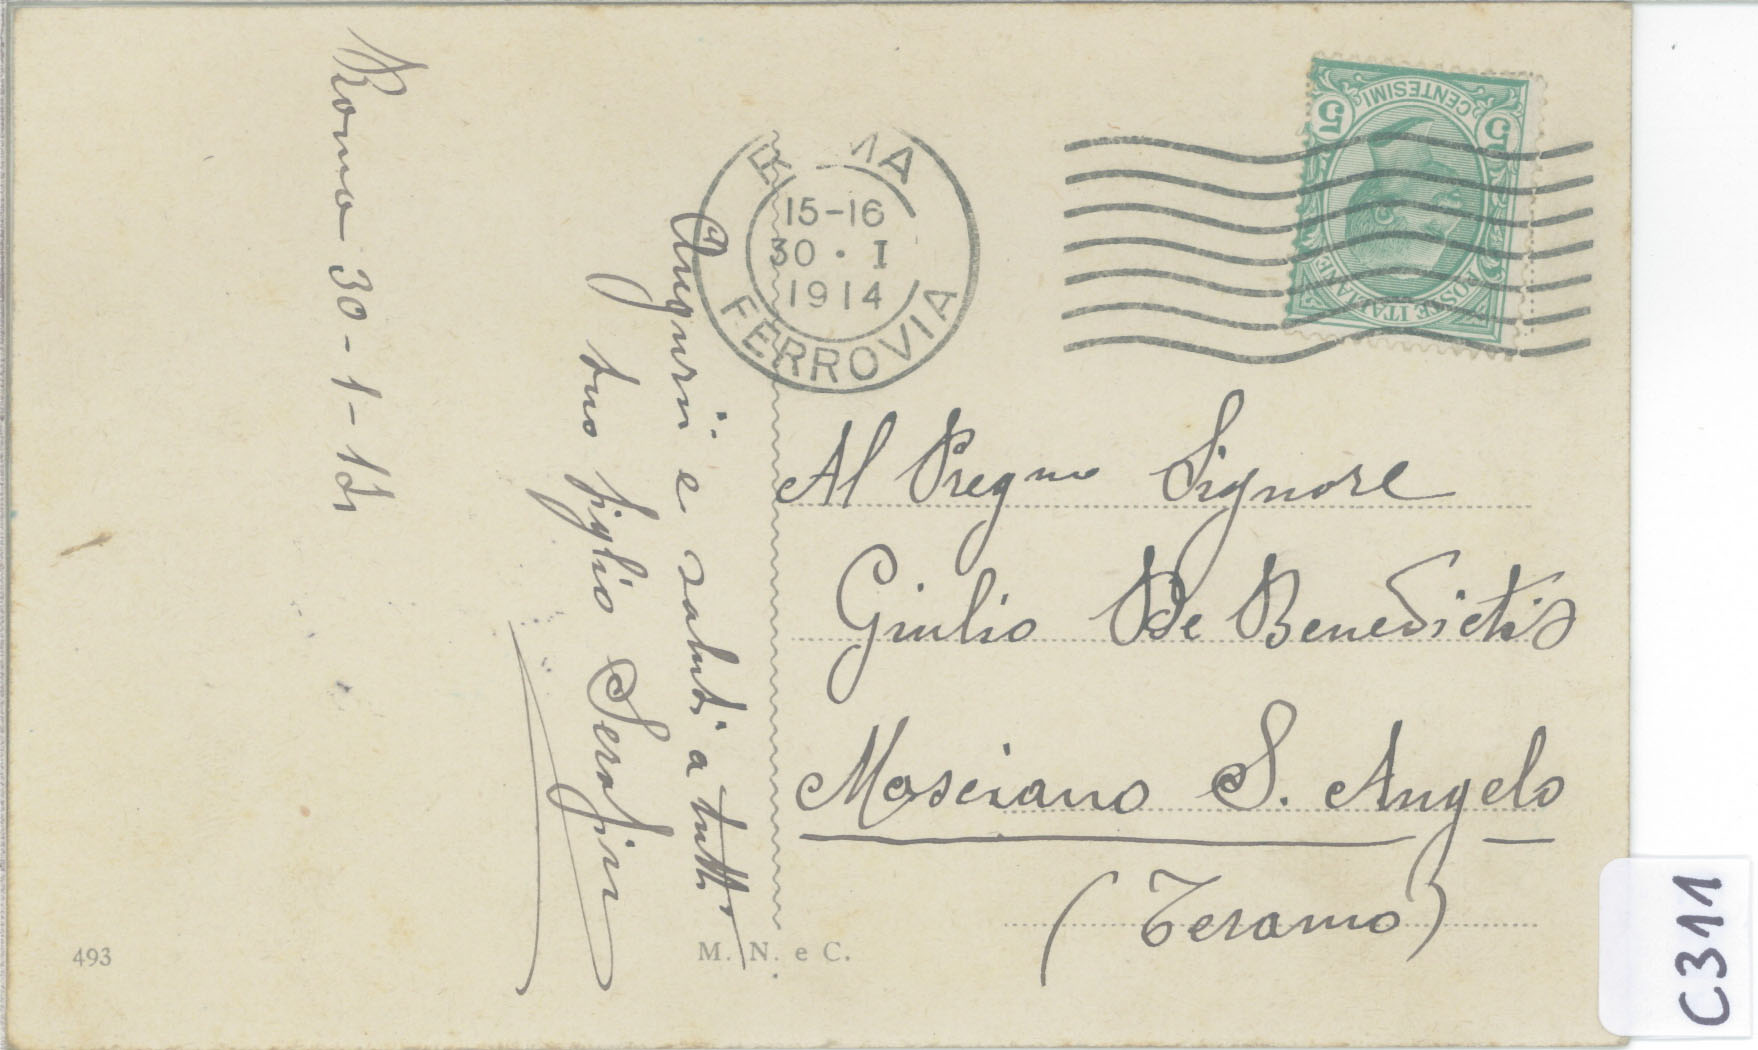 Roma 30-1-14
Augurii e saluti a tutti
tuo figlio Serafini
ROMA
15-16
30 · I
1914
FERROVIA
5 CENTESIMI 5
POSTE ITALIANE
Al Pregmo Signore
Giulio De Benedictis
Mosciano S. Angelo
(Teramo)
493
M. N. e C.
C311